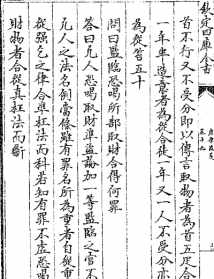 欽定四庫全書
首不行又不受分即以傳言取物者為首五疋合
一年半造意者為從合徒一年又一人不受分亦
為從笞五十
問曰監臨恐喝所部取財合得何罪
答曰凡人恐喝取財準盜論加一等監臨之官不
凡人之法名例當條雖有罪名所為重者自從重
從強乞之律合準枉法而科若知有罪不虛恐喝
財物者合從真枉法而斷